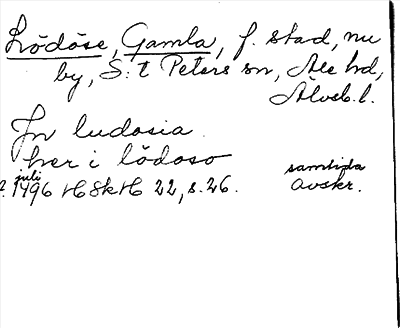 Lödöse, Gamla, f. stad, nu
by, S:t Peters sn, Ale hd,
Älvsb. l.
Jn ludosia
hver i lödoso
juli samtida
1496 HSkH 22, s. 26. avskr.